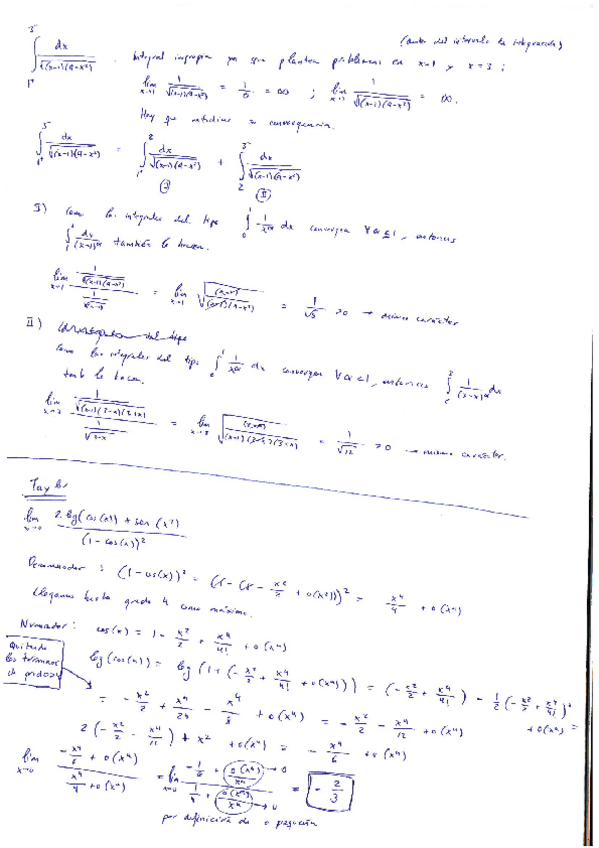 (dentro del intervalo de integración)
∫_{1⁺}^{3⁻} dx/√((x-1)(9-x²)) . Integral impropia ya que plantea problemas en x=1 y x=3 :
lim_{x→1} 1/√((x-1)(9-x²)) = 1/0 = ∞ ; lim_{x→3} 1/√((x-1)(9-x²)) = ∞.
Hay que estudiar su convergencia.
∫_{1⁺}^{3⁻} dx/√((x-1)(9-x²)) = ∫_{1⁺}^{2} dx/√((x-1)(9-x²)) + ∫_{2}^{3⁻} dx/√((x-1)(9-x²))
Ⓘ Ⓘ Ⓘ
I) Como las integrales del tipo ∫_0^1 1/x^α dx convergen ∀α<1, entonces
∫ dx/(x-1)^α también lo hacen.
lim_{x→1} (1/√((x-1)(9-x²)))/(1/√(x-1)) = lim_{x→1} √((x-1)/((x-1)(9-x²))) = 1/√8 >0 → mismo carácter
II)
Como las integrales del tipo ∫_0^1 1/x^α dx convergen ∀α<1, entonces ∫_2^3 1/(3-x)^α dx
tamb lo hacen.
lim_{x→3} (1/√((x-1)(3-x)(3+x)))/(1/√(3-x)) = lim_{x→3} √((3-x)/((x-1)(3-x)(3+x))) = 1/√12 >0 → mismo carácter.
Taylor
lim_{x→0} (2·log(cos(x)) + sen(x²))/(1-cos(x))²
Denominador : (1-cos(x))² = (1-(1-x²/2+o(x²)))² = x⁴/4 + o(x⁴)
Llegamos hasta grado 4 como máximo.
Numerador: cos(x) = 1 - x²/2 + x⁴/4! + o(x⁴)
Quitando los términos de grado>4
log(cos(x)) = log(1+(-x²/2+x⁴/4!+o(x⁴))) = (-x²/2+x⁴/4!) - 1/2(-x²/2+x⁴/4!)² + o(x⁴) =
= -x²/2 + x⁴/24 - x⁴/8 + o(x⁴) = -x²/2 - x⁴/12 + o(x⁴)
2(-x²/2 - x⁴/12) + x² + o(x⁴) = -x⁴/6 + o(x⁴)
lim_{x→0} (-x⁴/6 + o(x⁴))/(x⁴/4 + o(x⁴)) = lim_{x→0} (-1/6 + o(x⁴)/x⁴ → 0)/(1/4 + o(x⁴)/x⁴ → 0) = -2/3
por definición de o pequeña